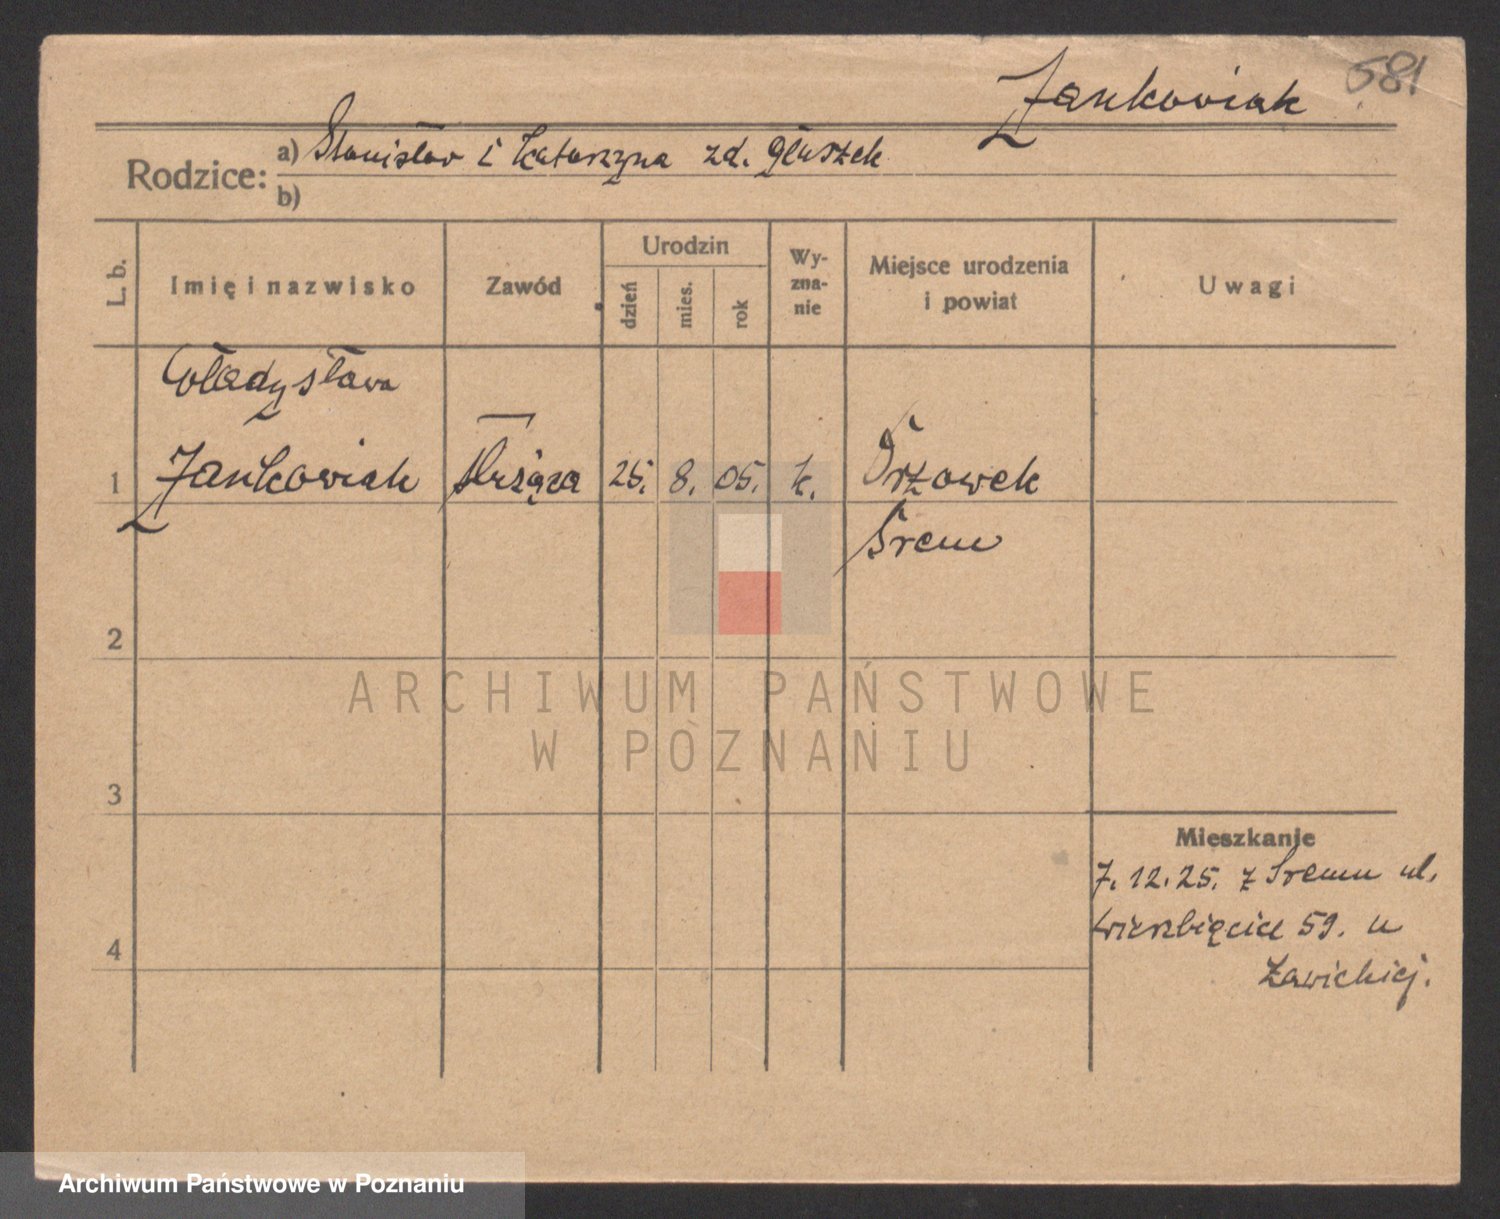 Jankowiak 581
Rodzice: a) Stanisław i Katarzyna zd. Głuszek
b)
L. b.
Imię i nazwisko
Zawód
Urodzin
dzień
mies.
rok
Wy-
zna-
nie
Miejsce urodzenia
i powiat
Uwagi
Władysława
1 Jankowiak służąca 25. 8. 05. k. Orzowek
Śrem
2
ARCHIWUM PAŃSTWOWE
W POZNANIU
3
Mieszkanie
7. 12. 25. z Śremu ul.
Wierzbięcice 59. u
Zawickiej.
4
Archiwum Państwowe w Poznaniu